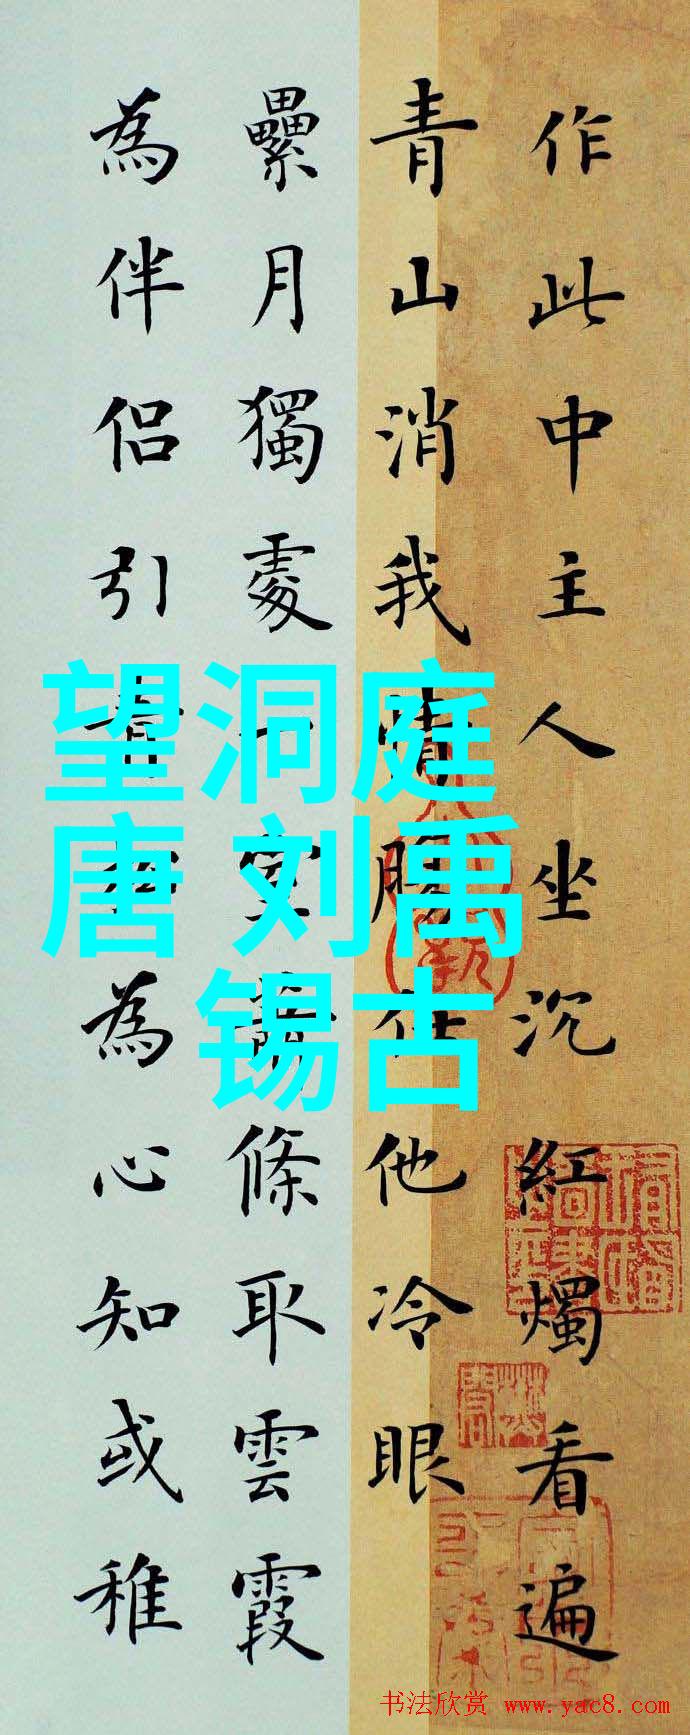 作此中主人坐沉紅燭看遍
青山消我情腸任他冷眼
纍月獨處一室蕭條取雲霞
為伴侶引青松為心知或稚
望洞庭
唐 刘禹
锡古
书法欣赏 www.yac8.com